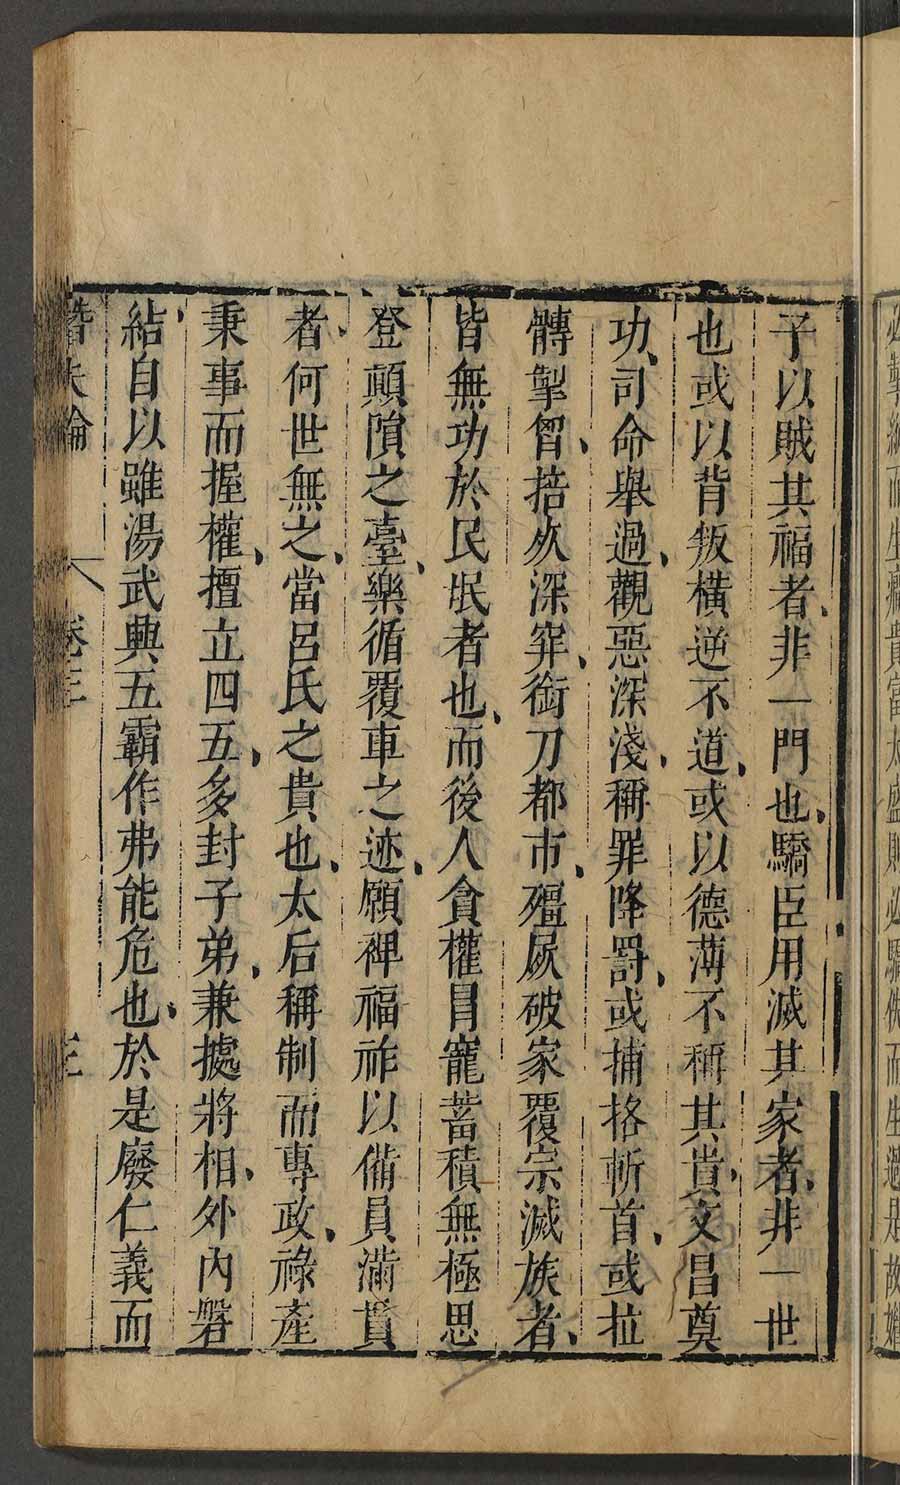 子以賊其福者、非一門也、驕臣用滅其家者、非一世
也或以背叛橫逆不道、或以德薄不稱其貴、文昌奠
功、司命舉過、觀惡深淺、稱罪降罰、或捕格斬首、或拉
髆掣𦚾、掊死深穽、銜刀都市、殭屍破家覆宗滅族者、
皆無功於民氓者也、而後人貪權冒寵蓄積無極思
登顛隕之臺、樂循覆車之迹、願裨福祚以備員滿貫
者、何世無之、當呂氏之貴也、太后稱制而專政、祿產
秉事而握權、擅立四五、多封子弟、兼據將相、外內磐
結、自以雖湯武興五霸作弗能危也、於是廢仁義而
潛夫論 卷三 三